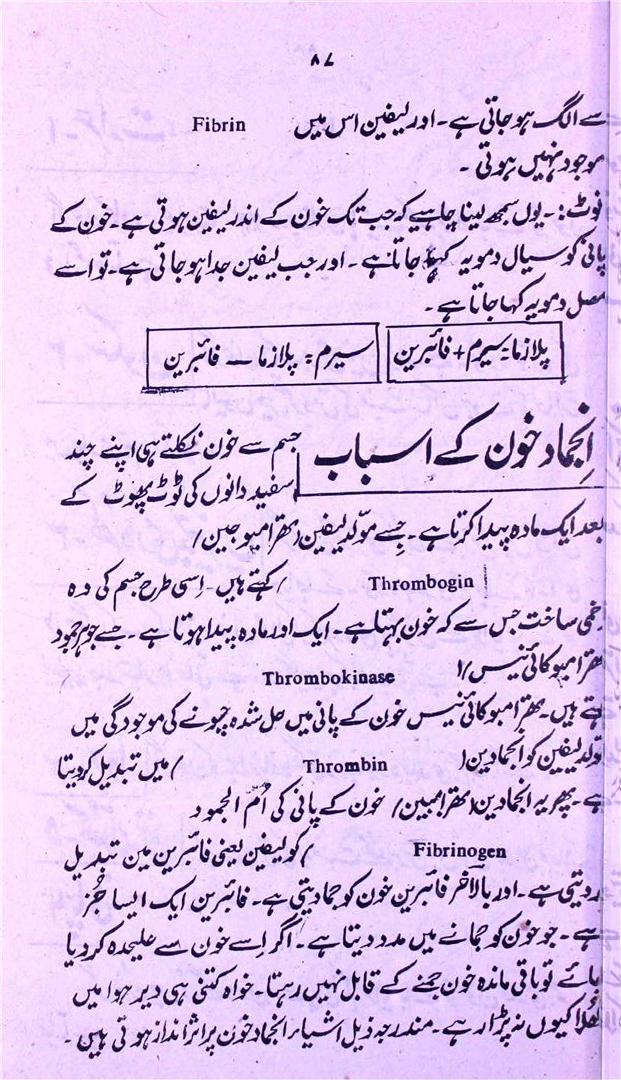 ۸۷
سے الگ ہو جاتی ہے۔ اور لیفین اس میں Fibrin
موجود نہیں ہوتی۔
نوٹ:۔ یوں سمجھ لینا چاہیے کہ جب تک خون کے اندر لیفین ہوتی ہے۔ خون کے
پانی کو سیال دمویہ کہا جاتا ہے۔ اور جب لیفین جدا ہو جاتی ہے۔ تو اسے
مصل دمویہ کہا جاتا ہے۔
پلازما=سیرم+فائبرین
سیرم= پلازما — فائبرین
اِنجماد خون کے اسباب
جسم سے خون نکلتے ہی اپنے چند
سفید دانوں کی ٹوٹ پھوٹ کے
بعد ایک مادہ پیدا کرتا ہے۔ جسے مولّد لیفین (تھرامبوجین)
Thrombogin ) کہتے ہیں۔ اسی طرح جسم کی وہ
زخمی ساخت جس سے کہ خون بہتا ہے۔ ایک اور مادہ پیدا ہوتا ہے۔ جسے
تھرامبوکائی نیس) ( Thrombokinase
ہتے ہیں۔ تھرامبوکائی نیس خون کے پانی میں حل شدہ چونے کی موجودگی میں
مولد لیفین کو انجمادین ( Thrombin ) میں تبدیل کر دیتا
ہے۔ پھر یہ انجمادین (تھرامبین) خون کے پانی کی اُمّ الجمود
Fibrinogen ) کو لیفین یعنی فائبرین مین تبدیل
ردیتی ہے۔ اور بالآخر فائبرین خون کو جما دیتی ہے۔ فائبرین ایک ایسا جُز
ہے۔ جو خون کو جمانے میں مدد دیتا ہے۔ اگر اِسے خون سے علیحدہ کر دیا
جائے تو باقی ماندہ خون جمنے کے قابل نہیں رہتا۔ خواہ کتنی ہی دیر ہوا میں
کھلا کیوں نہ پڑا رہے۔ مندرجہ ذیل اشیاء انجماد خون پر اثر انداز ہوتی ہیں۔